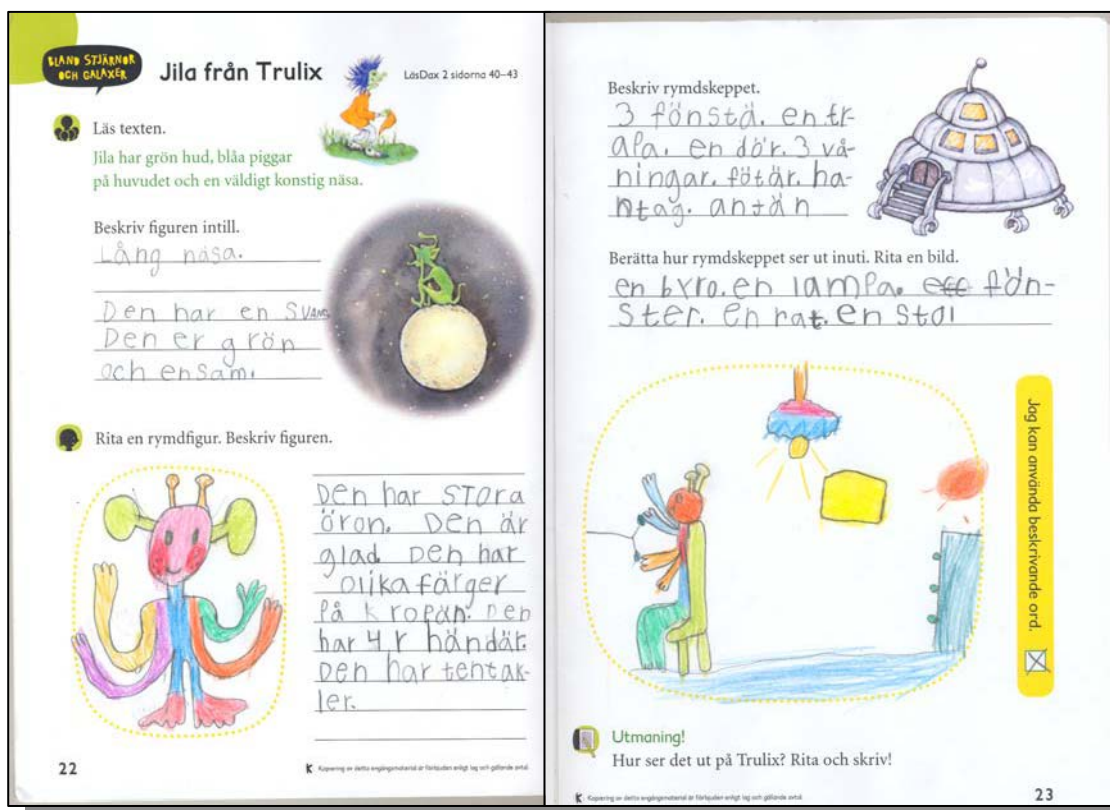 BLAND STJÄRNOR
OCH GALAXER
Jila från Trulix
LäsDax 2 sidorna 40–43
Läs texten.
Jila har grön hud, blåa piggar
på huvudet och en väldigt konstig näsa.
Beskriv figuren intill.
Lång näsa.
Den har en SVANS.
Den er grön
och ensam.
Rita en rymdfigur. Beskriv figuren.
Den har STora
öron. Den är
glad Den har
olika färger
på kropän. Den
har 4 r händär.
Den har tentak-
ler.
22
K Kopiering av detta engångsmaterial är förbjuden enligt lag och gällande avtal.
Beskriv rymdskeppet.
3 fönstä. en tr-
apa. en dör. 3 vå-
ningar. fötär. ha-
ntag. antän
Berätta hur rymdskeppet ser ut inuti. Rita en bild.
en byro. en lampa. fön-
ster. en rat. en stol
Jag kan använda beskrivande ord.
Utmaning!
Hur ser det ut på Trulix? Rita och skriv!
K Kopiering av detta engångsmaterial är förbjuden enligt lag och gällande avtal.
23